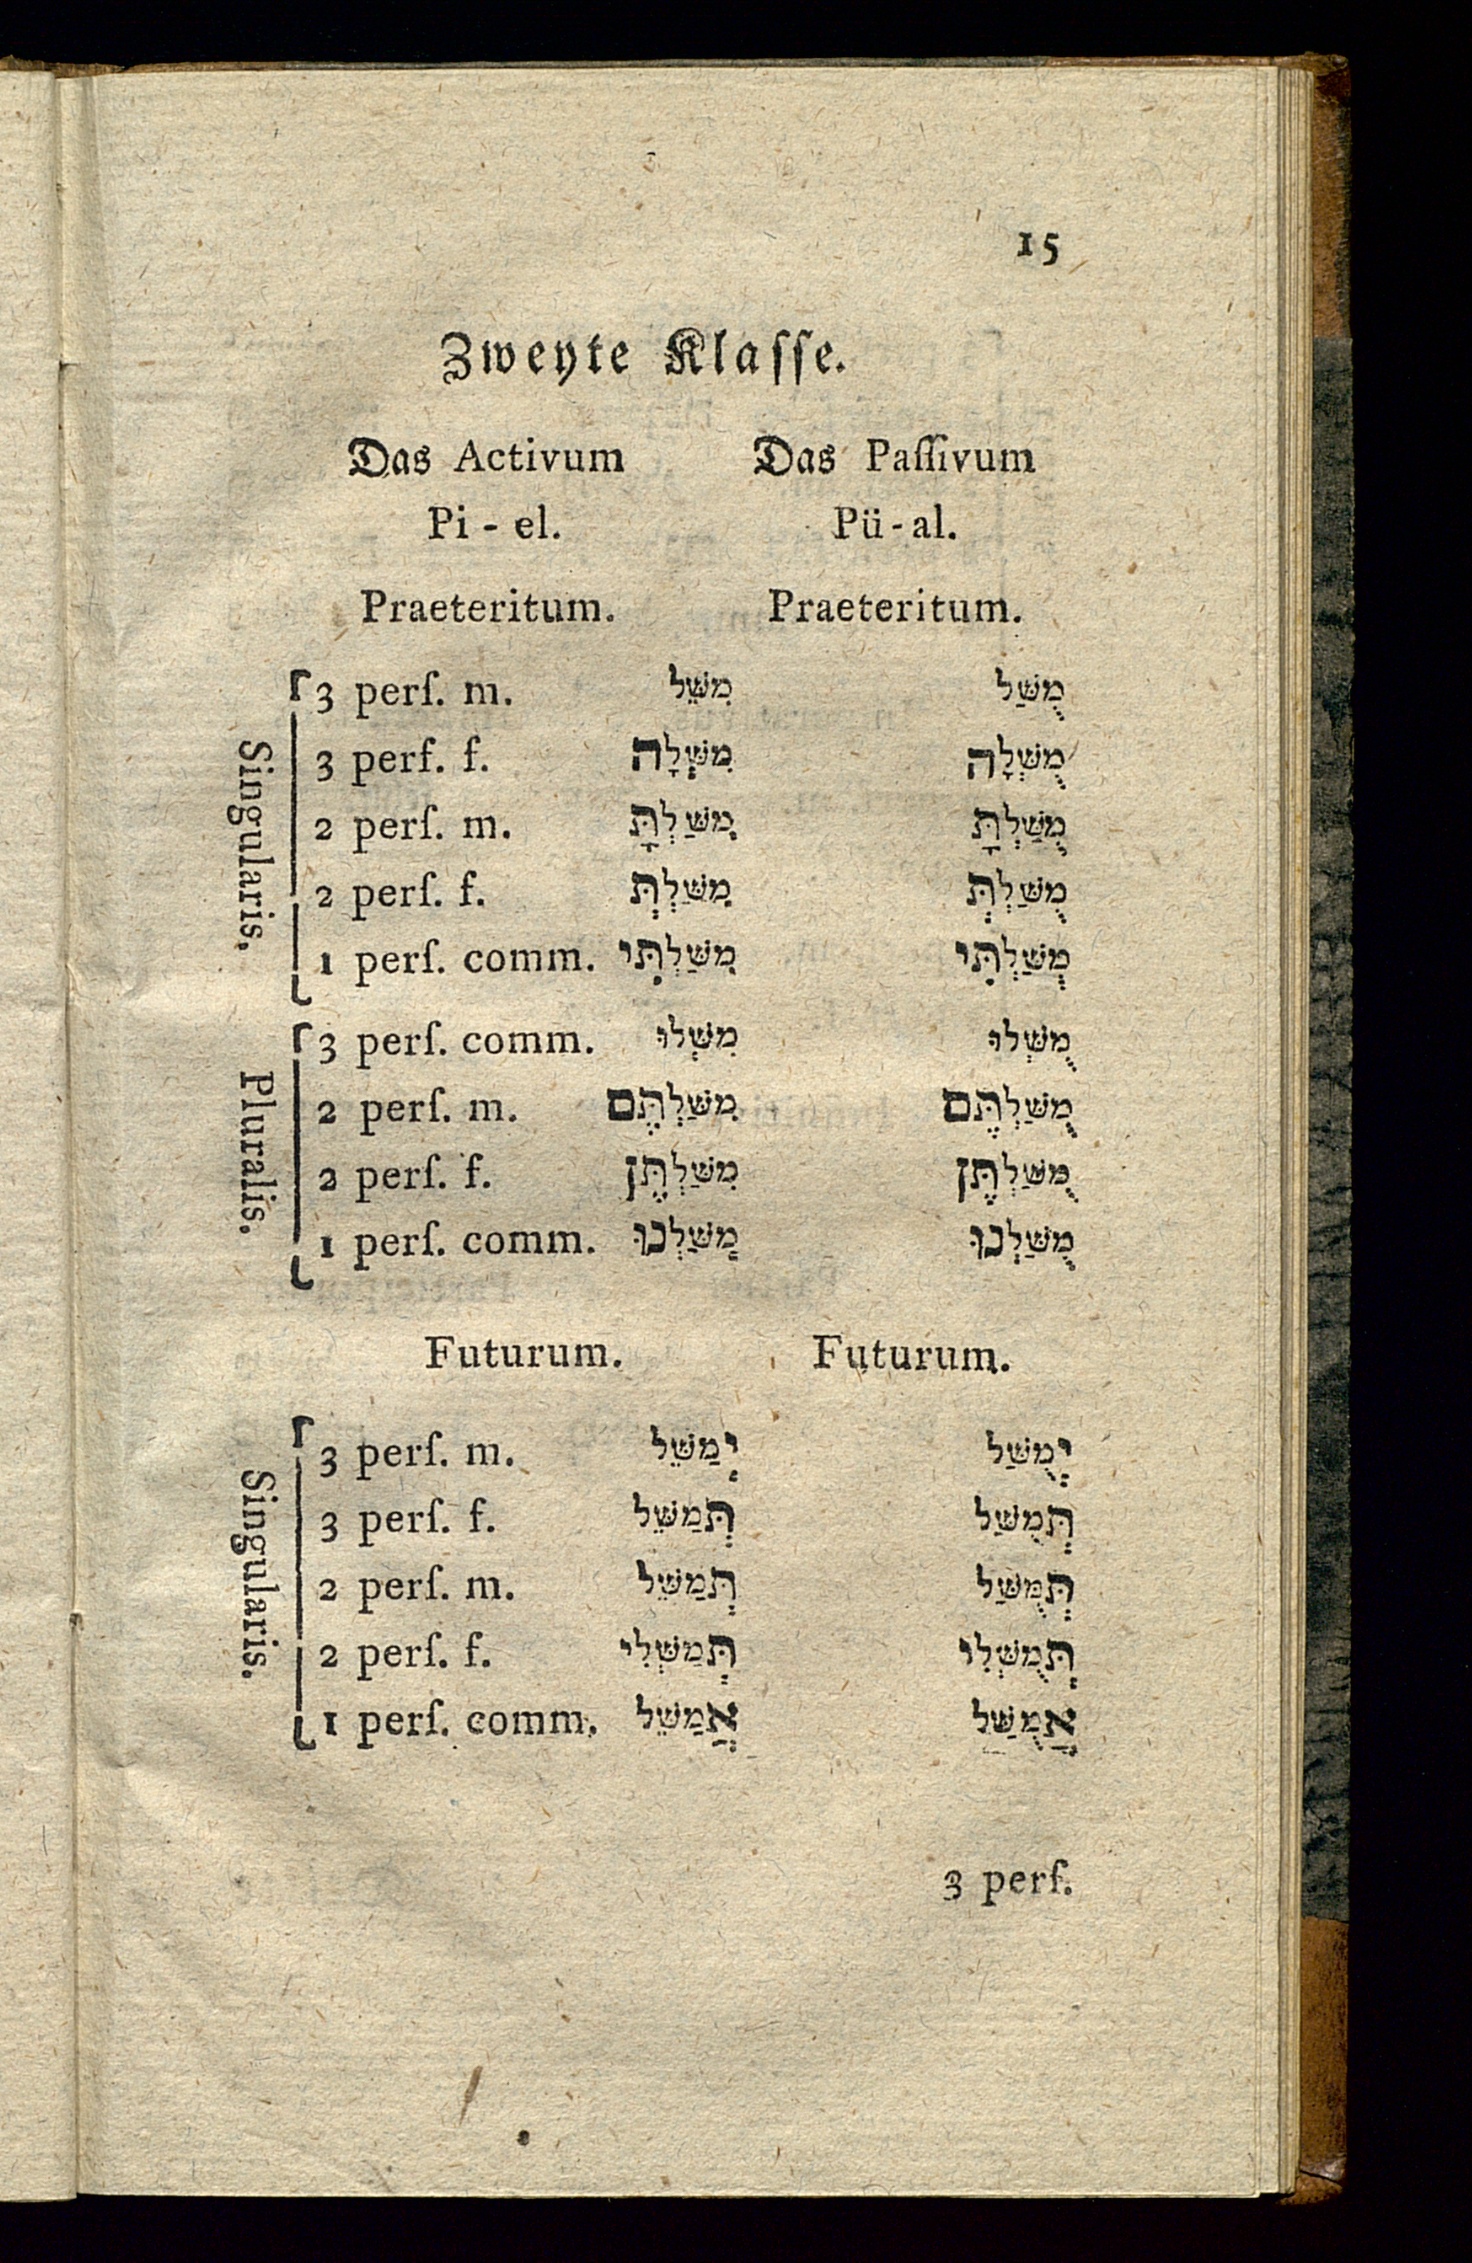 15
Zweyte Klaſſe.
Das Activum Das Paſſivum
Pi - el. Pü - al.
Praeteritum. Praeteritum.
Singularis.
3 perſ. m. מִשֵּׁל מֻשַּׁל
3 perf. f. מִשְּׁלָה מֻשְּׁלָה
2 perſ. m. מִשַּׁלְתָּ מֻשַּׁלְתָּ
2 perſ. f. מִשַּׁלְתְּ מֻשַּׁלְתְּ
1 perſ. comm. מִשַּׁלְתִּי מְשַּׁלְתִּי
Pluralis.
3 perſ. comm. מִשְּׁלוּ מֻשְּׁלוּ
2 perſ. m. מִשַּׁלְתֶּם מֻשַּׁלְתֶּם
2 perſ. f. מִשַּׁלְתֶּן מֻשַּׁלְתֶּן
1 perſ. comm. מִשַּׁלְנוּ מֻשַּׁלְנוּ
Futurum. Futurum.
Singularis.
3 perſ. m. יְמַשֵּׁל יְמֻשַּׁל
3 perſ. f. תְּמַשֵּׁל תְּמֻשַּׁל
2 perſ. m. תְּמַשֵּׁל תְּמֻשַּׁל
2 perſ. f. תְּמַשְּׁלִי תְּמֻשְּׁלִי
1 perſ. comm. אֲמַשֵּׁל אֲמֻשַּׁל
3 perſ.